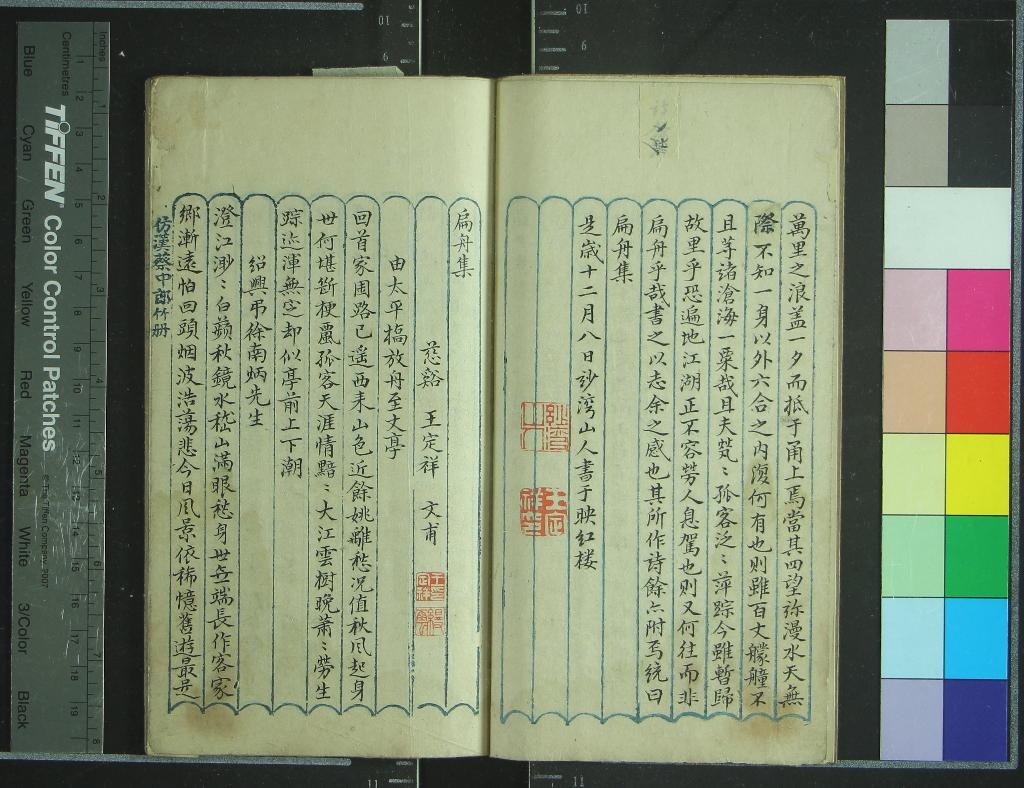 萬里之浪盖一夕而抵于甬上焉當其四望弥漫水天無
際不知一身以外六合之内復何有也則雖百丈艨艟不
且等諸滄海一粟哉且夫煢〻孤客泛〻萍踪今雖暫歸
故里乎恐遍地江湖正不容勞人息駕也則又何往而非
扁舟乎哉書之以志余之感也其所作诗餘亦附焉统曰
扁舟集
是歲十二月八日沙湾山人書于映紅楼
扁舟集
慈谿 王定祥 文甫
由太平橋放舟至丈亭
回首家園路已遥西来山色近餘姚離愁况值秋風起身
世何堪断梗飄孤客天涯情黯〻大江雲樹晚萧〻勞生
踪迹渾無定却似亭前上下潮
绍興弔徐南炳先生
澄江渺〻白蘋秋鏡水嵇山滿眼愁身世無端長作客家
鄉漸遠怕回頭烟波浩荡悲今日風景依稀憶舊遊最是
仿漢蔡中郎竹册
Inches
Centimetres
TIFFEN Color Control Patches
©The Tiffen Company, 2007
Blue Cyan Green Yellow Red Magenta White 3/Color Black